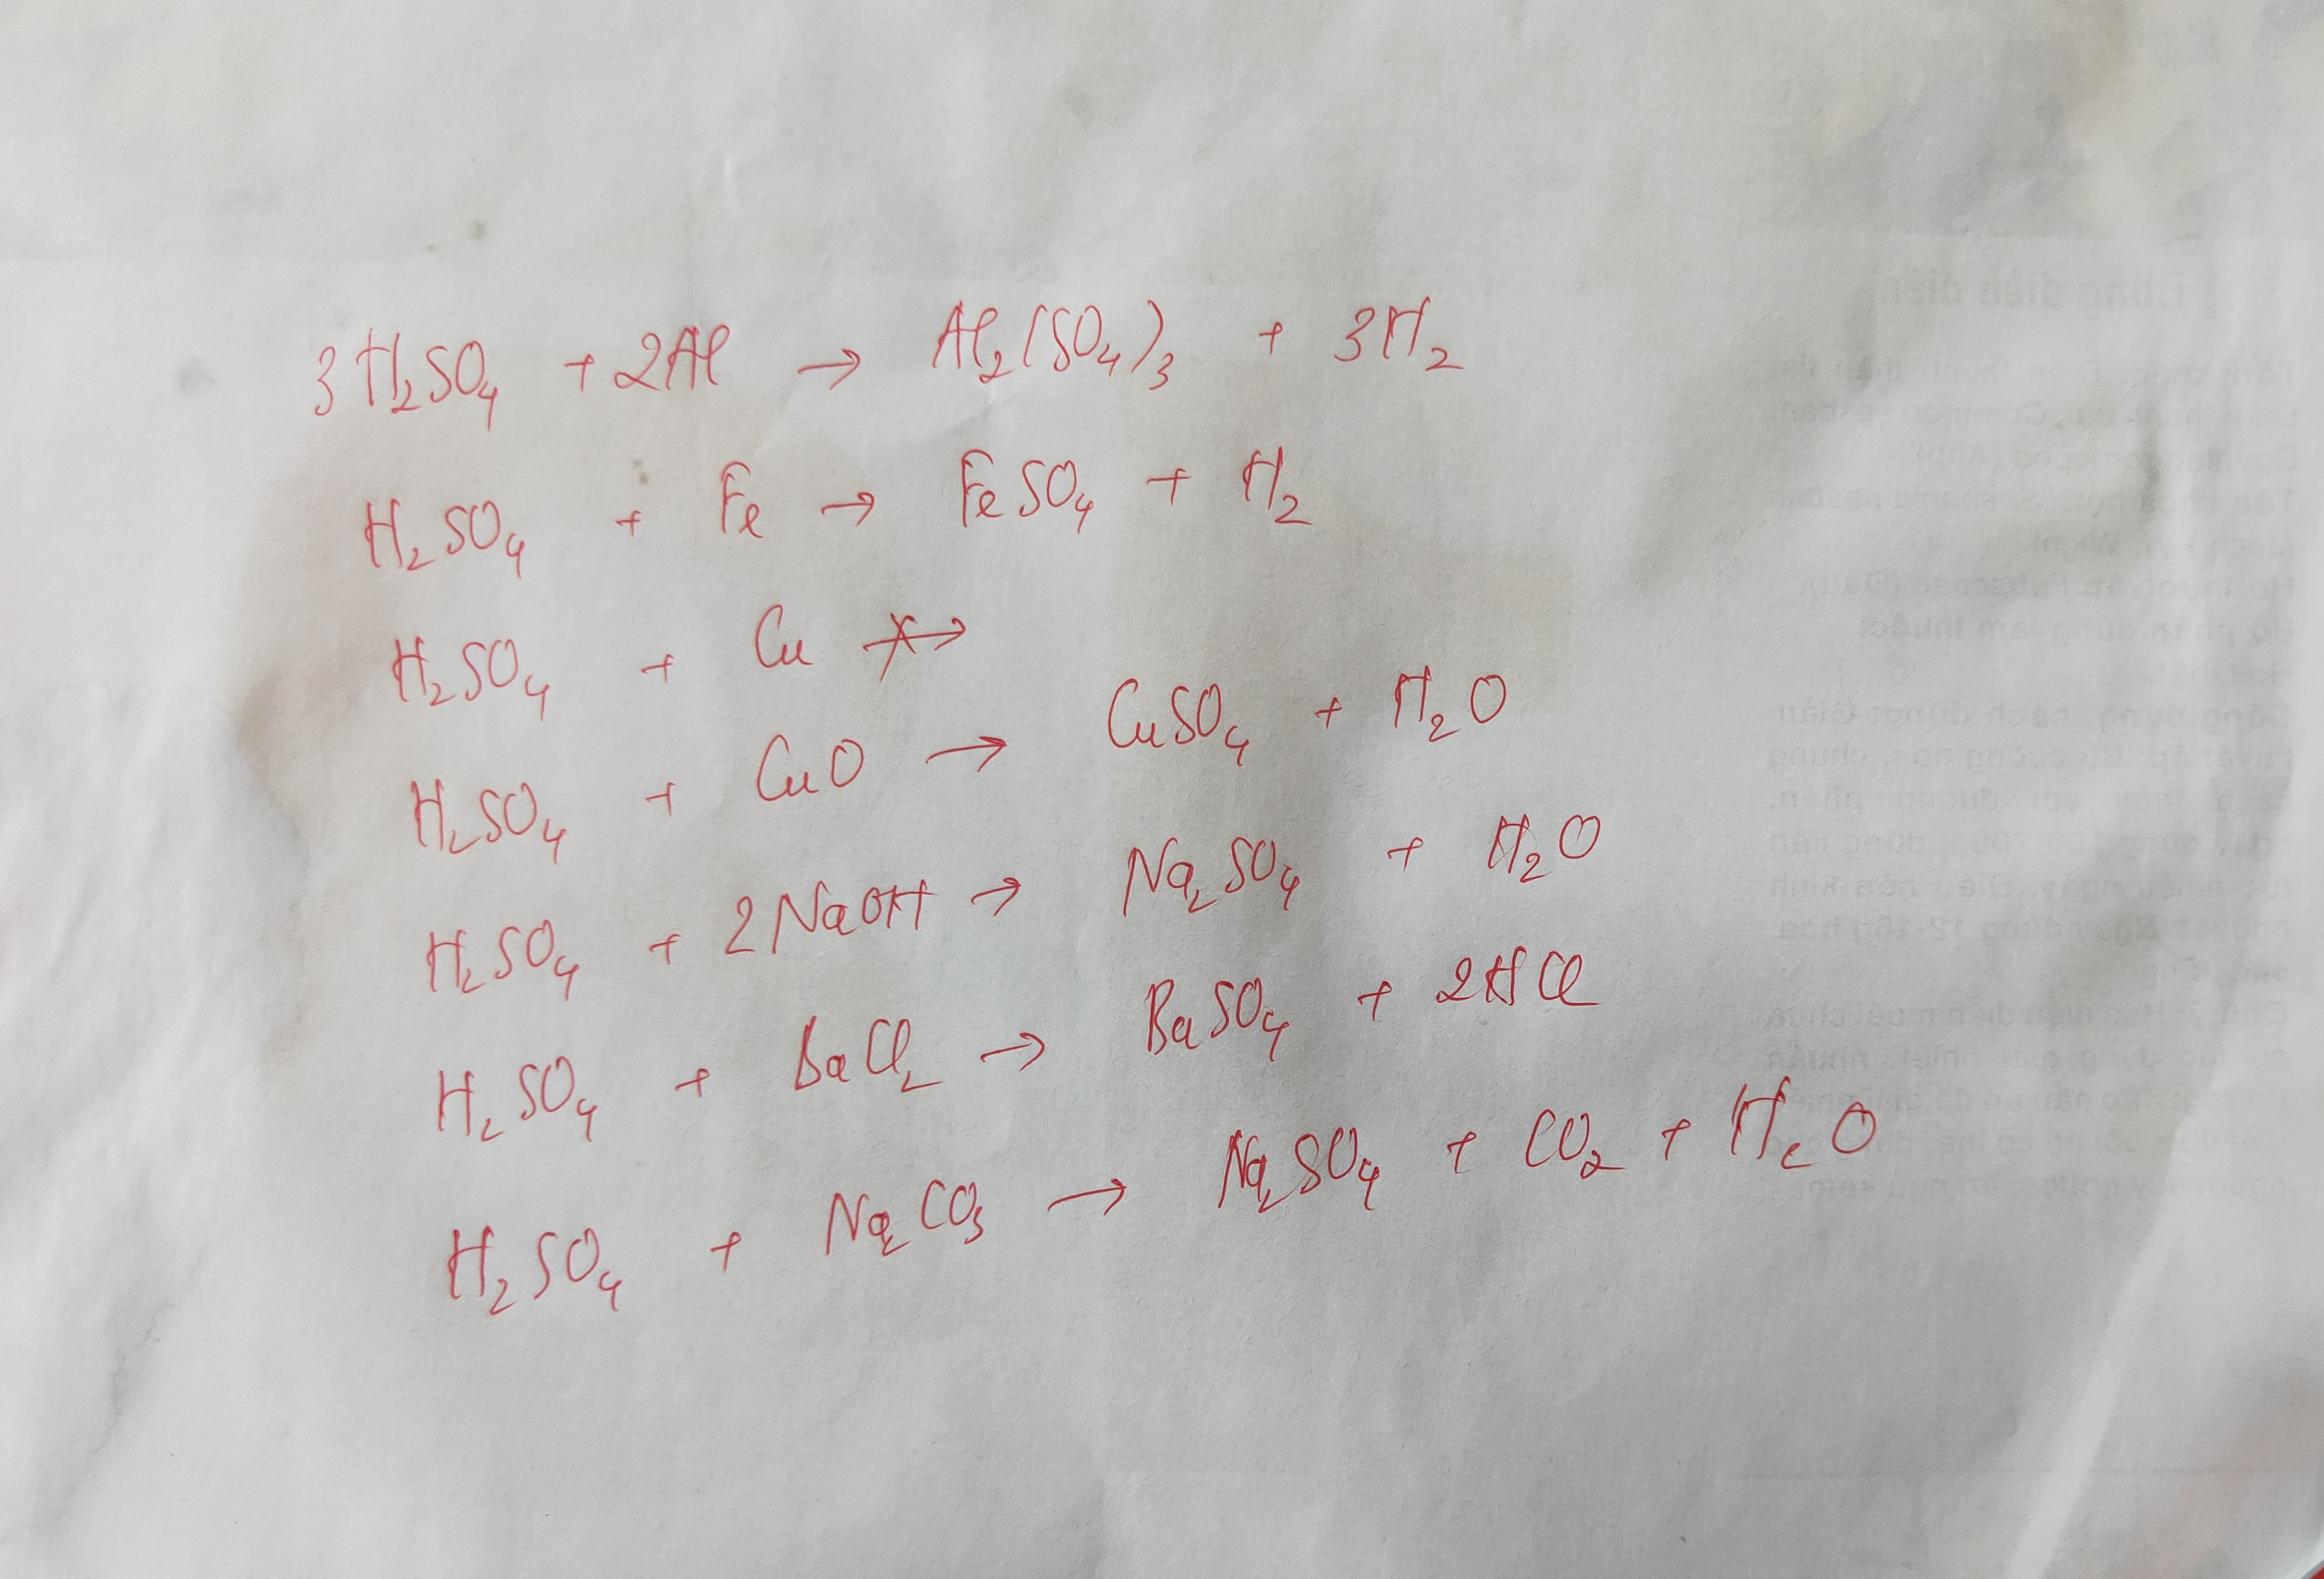 3H₂SO₄ + 2Al → Al₂(SO₄)₃ + 3H₂
H₂SO₄ + Fe → FeSO₄ + H₂
H₂SO₄ + Cu ↛
H₂SO₄ + CuO → CuSO₄ + H₂O
H₂SO₄ + 2NaOH → Na₂SO₄ + H₂O
H₂SO₄ + BaCl₂ → BaSO₄ + 2HCl
H₂SO₄ + Na₂CO₃ → Na₂SO₄ + CO₂ + H₂O